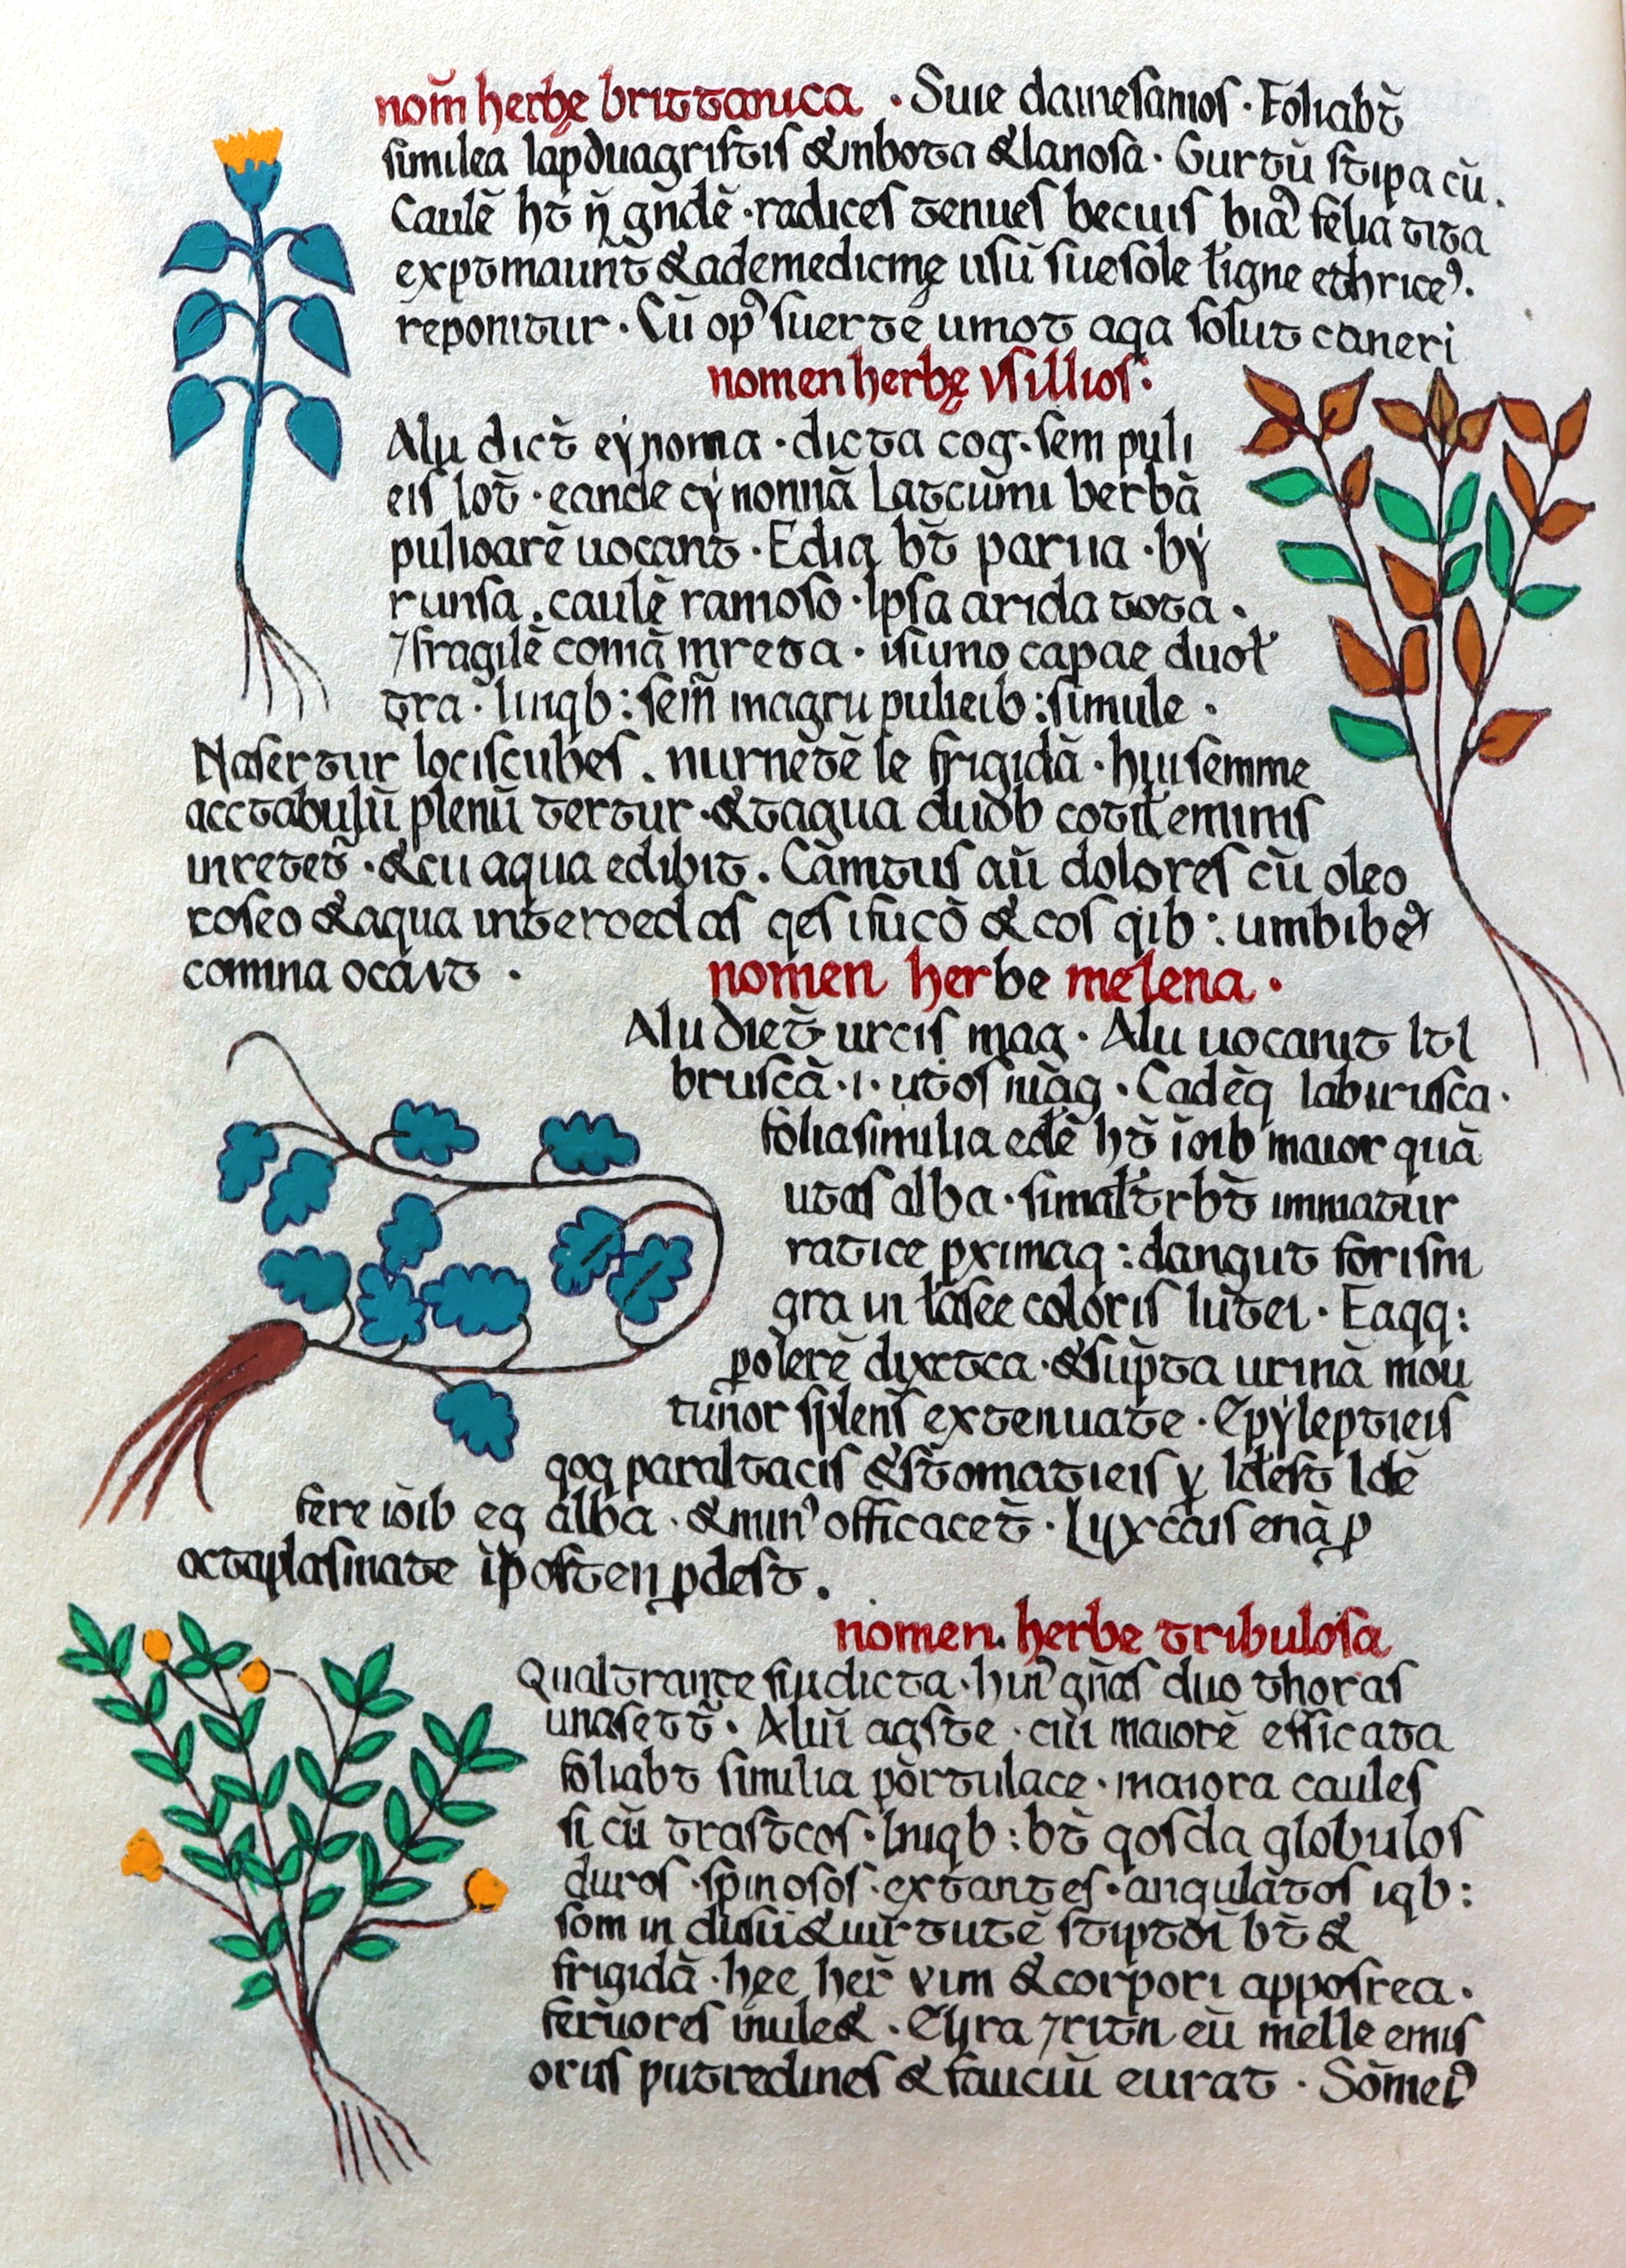 nom̄ herbę brittanica · Suie dauiesamos · Foliabt̄
similea lapduagristis &inbota &lanosa · Gurtū stipa cū.
Caulē ht̄ n̄ gn̄dē · radices tenues becuis bia᷒ felia tita
exptmaunt̄ &ademedicinę usū suesole ligne ethrice᷒.
reponitur · Cū op᷒ suertē umot aqa solut caneri
nomen herbę vsillios ·
Alu dict̄ eÿnoma · dicta cog · sem puli
eis lot̄ · eande cÿ nonnā Latcūmi berbā
pulioarē uocant · Edia bt̄ parua · bÿ
runsa . caulē ramoso · Ipsa arida tota ·
⁊fragilē comā inreta · isumo capae duoł
tra · linqb : sem̄ magru pulieib : simule ·
Nasertur lociscubes . nurnetē le frigidā · huisemme
acctabulū plenū tertur · &tagua duob cotiłeminis
inretet̄ · &cu aqua edibit . Cāmtus aū dolores cū oleo
roseo &aqua interoedas qes ifucō & cos qib : umbibe᷒
comna ocavt · 
nomen herbe melena ·
Alu diet̄ urcis mag · Alu uocant ltl
bruscā · ı · utos māg · Cadēq laburusca ·
foliasimilia edē ht̄ īoib maior quā
utas alba · simałtrbt̄ immatur
ratice pximaq : dangut forisni
gra in łasee coloris lutei · Eaqq :
polerē dixtca · &sup̄ta urinā mou
tūnor splenis extenuate · Epÿleptieis
qoq paraltacis &stomatieis ÿ Idest Idē
fere ioib eq alba · &min᷒ officacet̄ · Lyxcais enā p
octaplasmate ip̄osten pdest .
nomen . herbe tribulosa
Qualtrante siudicta · hui᷒ gn̄as duo thoras
unasett̄ · Aluī agste · cui maiorē efficata
foliabt similia pōrtulace · maiora caules
si cū trastcos · Iniqb : bt̄ qosda globulos
duros · spinosos · extantes · angulatos iqb :
som in disui &uirtutē stiptoī bt̄ &
frigidā · hęe her̄ vim &corpori apposrea .
feruores inule& · Cyra ⁊ritn eū melle emis
oris putredines & fauciū eurat · Sōmei᷒